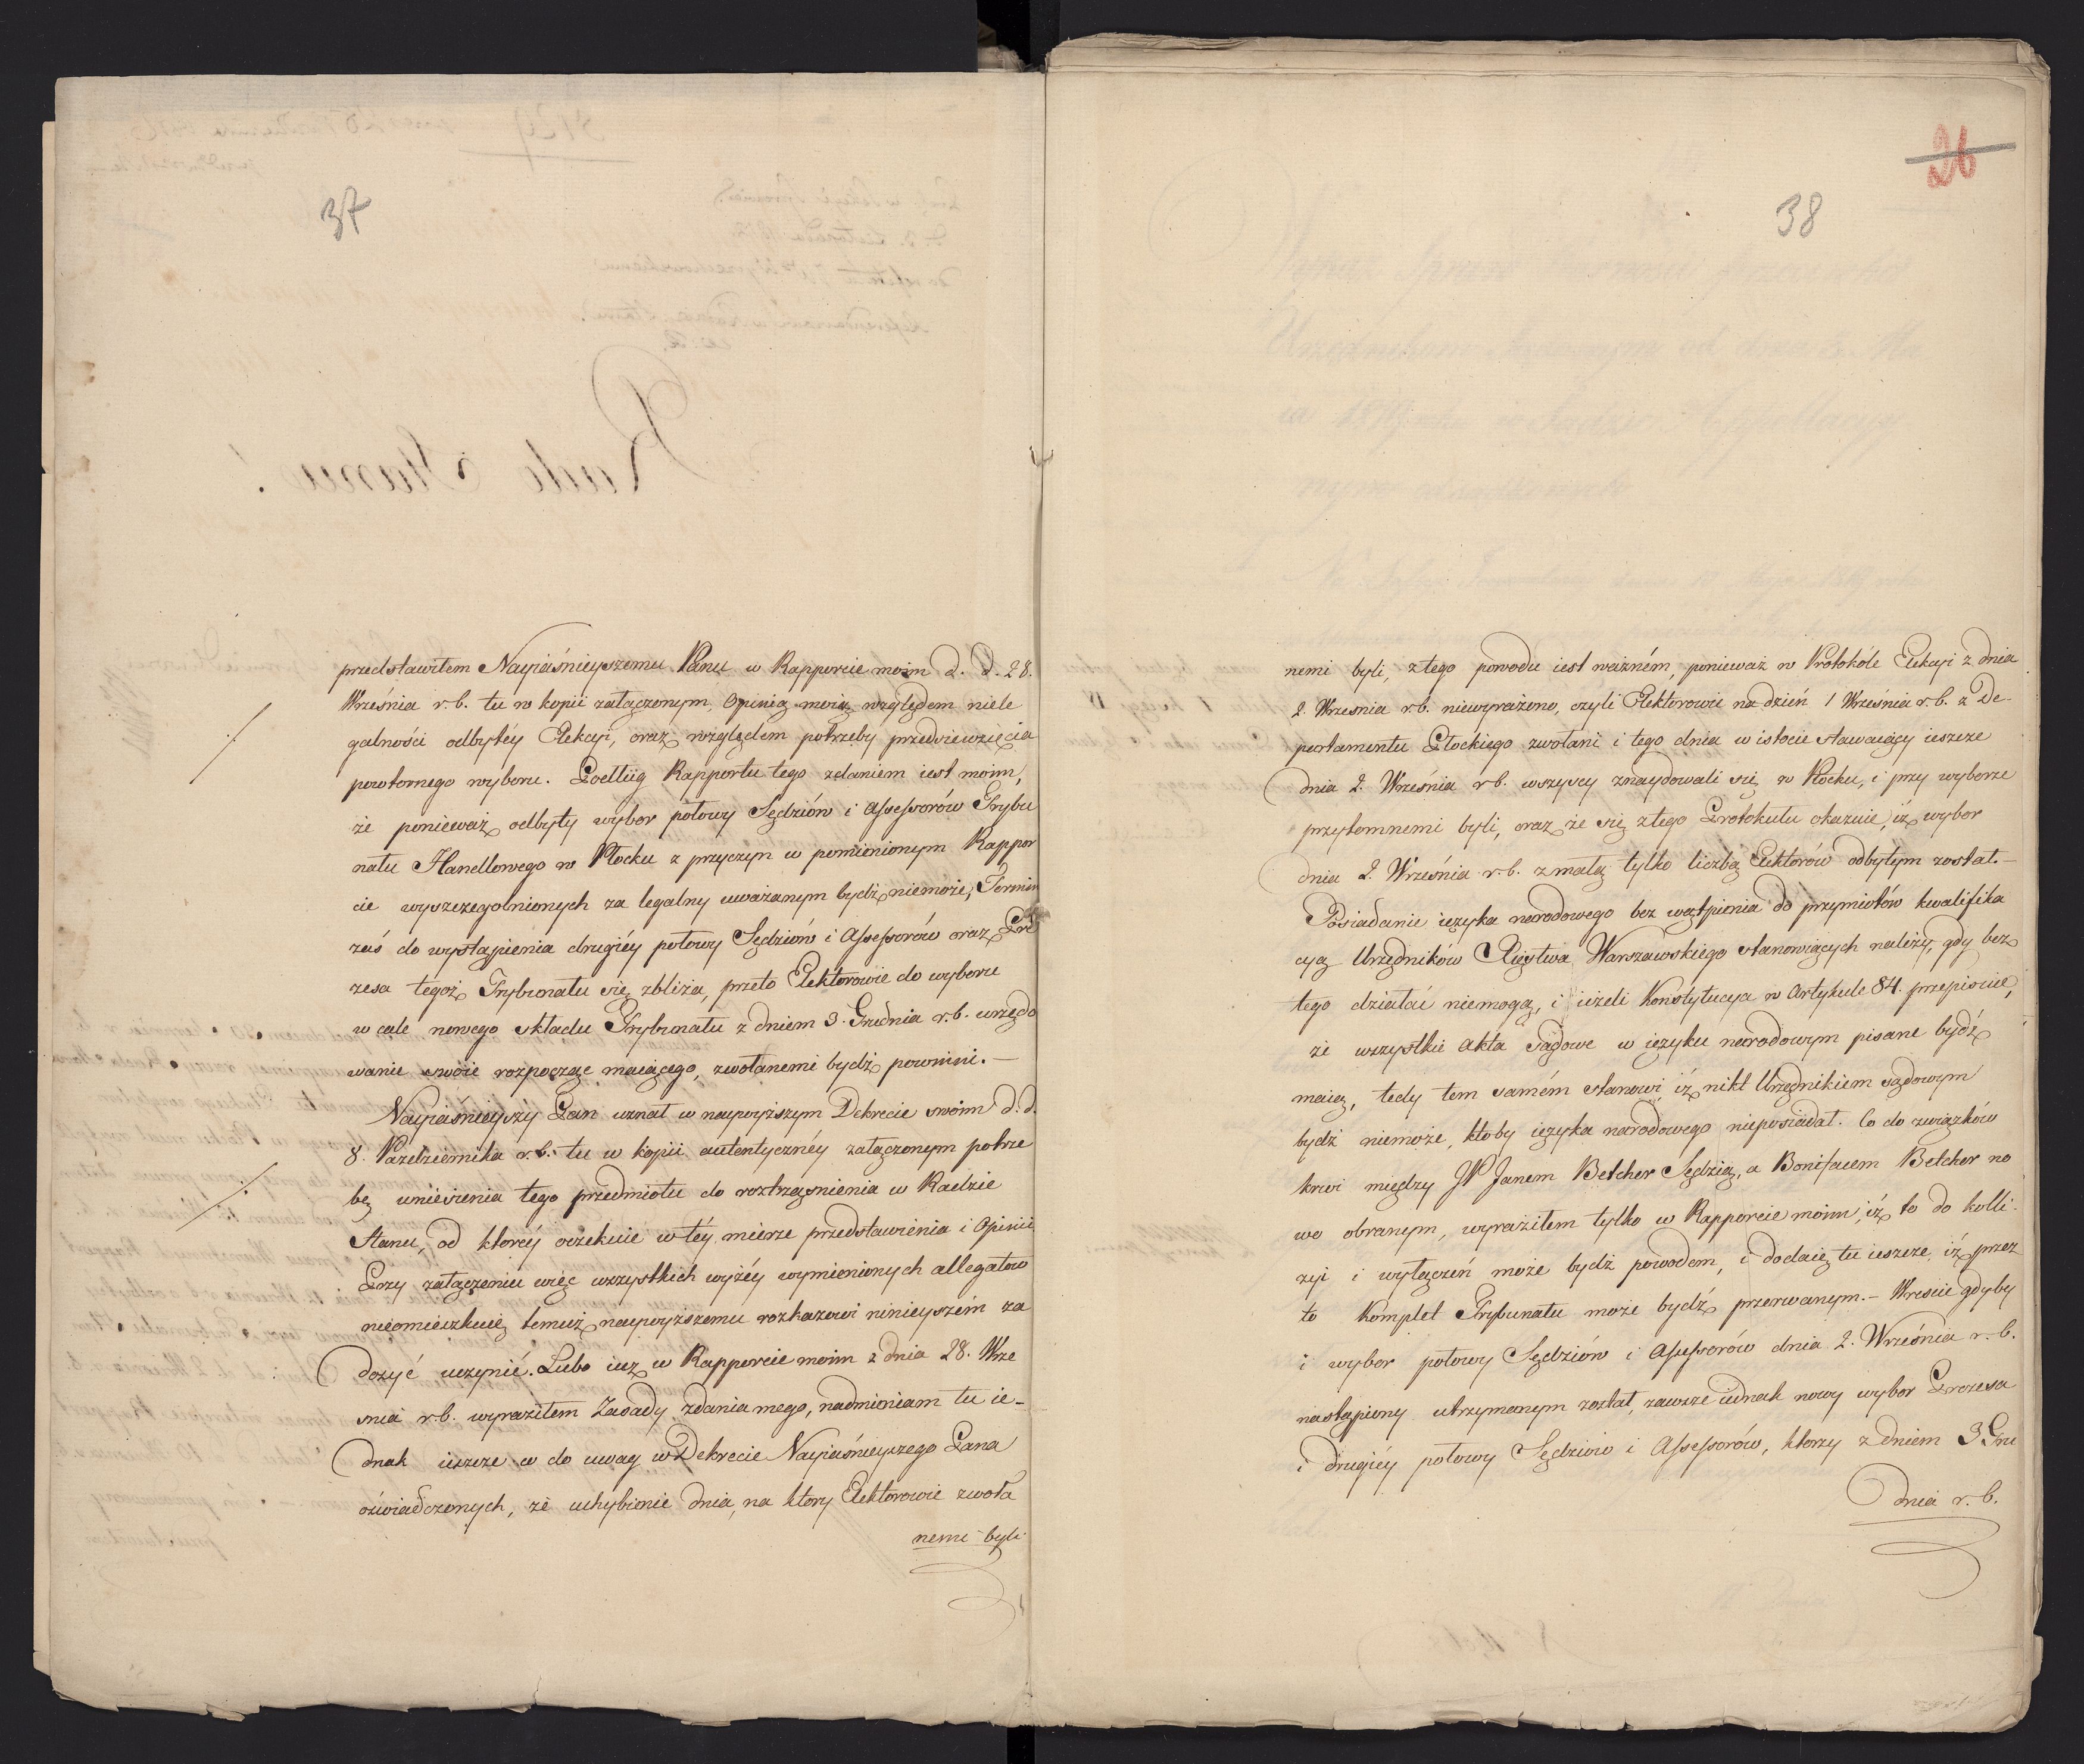 37
przedstawiłem Nayiaśnieyszemu Panu w Rapporcie moim d. d. 28.
Września r. b. tu w kopii załączonym, Opinią moię względem niele
galności odbytéy Elekcyi, oraz względem potrzeby przedsiewzięcia
powtornego wyboru. Podług Rapportu tego zdaniem iest moim,
że ponieważ odbyty wybor połowy Sędziów i Assessorów Trybu
nału Handlowego w Płocku z przyczyn w pomienionym Rappor
cie wyszczegolnionych za legalny uważanym bydź niemoże, Termin
zaś do wystąpienia drugiéy połowy Sędziów i Assessorów oraz Pre
zesa tegoż Trybunału się zbliża, przeto Elektorowie do wyboru
w cale nowego składu Trybunału z dniem 3. Grudnia r. b. urzędo
wanie swoie rozpocząć maiącego, zwołanemi bydź powinni. —
Nayiaśnieyszy Pan uznał w naywyższym Dekrecie swoim d. d.
8. Pazdziernika r. b. tu w kopii autentycznéy załączonym potrze
bę wniesienia tego przedmiotu do roztrząśnienia w Radzie
Stanu, od któréy oczekuie w téy mierze przedstawienia i Opinii
Przy załączeniu więc wszystkich wyżéy wymienionych allegatow
nieomieszkuię temuż naywyższemu rozkazowi ninieyszém za
dosyć uczynić. Lubo iuż w Rapporcie moim z dnia 28. Wrze
śnia r. b. wyraziłem Zasady zdania mego, nadmieniam tu ie-
dnak ieszcze co do uwag w Dekrecie Nayiaśnieyszego Pana
oświadczonych, że uchybienie dnia, na ktory Elektorowie zwoła
nemi byli
26
38
nemi byli, z tego powodu iest ważném, ponieważ w Protokóle Elekcyi z dnia
2. Wrzesnia r. b. niewyrażono, czyli Elektorowie na dzień 1 Września r. b. z De-
partamentu Płockiego zwołani i tego dnia w istocie stawaiący ieszcze
dnia 2. Września r. b. wszyscy znaydowali się w Płocku, i przy wyborze
przytomnemi byli, oraz że się z tego Protokułu okazuie, iż wybor
dnia 2. Września r. b. z małą tylko liczbą Elektorów odbytym został. —
Posiadanie ięzyka narodowego bez wątpienia do przymiotów kwalifika
cyą Urzędników Xięstwa Warszawskiego stanowiących należy, gdy bez
tego działać niemogą, i ieżeli Konstytucya w Artykule 84. przepisuie,
że wszystkie akta Sądowe w ięzyku narodowym pisane bydź
maią, tedy tem samém stanowi, iż nikt Urzędnikiem sądowym
bydź niemoże, ktoby ięzyka narodowego nieposiadał. Co do związków
krwi między JP Janem Betcher Sędzią, a Bonifacem Betcher no
wo obranym, wyraziłem tylko w Rapporcie moim, iż to do kolli-
zyi i wyłączeń może bydź powodem, i dodaię tu ieszcze, iż przez
to Komplet Trybunału może bydź przerwanym. — Wreście gdyby
i wybor połowy Sędziów i Assessorów dnia 2. Września r. b.
nastąpiony utrzymanym został, zawsze iednak nowy wybor Prezesa
i drugiéy połowy Sędziow i Assessorów, ktorzy z dniem 3 Gru
dnia r. b.